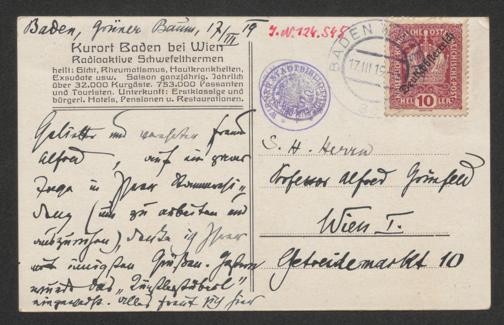 Baden, Grüner Baum, 17/III 19
J.N. 124.548
Kurort Baden bei Wien
Radioaktive Schwefelthermen
heilt: Gicht, Rheumatismus, Hautkrankheiten,
Exsudate usw. Saison ganzjährig. Jährlich
über 32.000 Kurgäste. 753.000 Passanten
und Touristen. Unterkunft: Erstklassige und
bürgerl. Hotels, Pensionen u. Restaurationen.
Geliebter und verehrter Freund
Alfred, auf ein paar
Tage in Ihrer
(um zu arbeiten und
auszuruhen), denke ich Ihrer
mit innigsten Grüßen. Gestern
wurde das „Künstlerstüberl“
eingeweiht. Alles freut sich hier
BADEN
17.III.19
Deutschösterreich
HELLER 10 HELLER
S. H. Herrn
Professor Alfred Grünfeld
Wien I.
Getreidemarkt 10